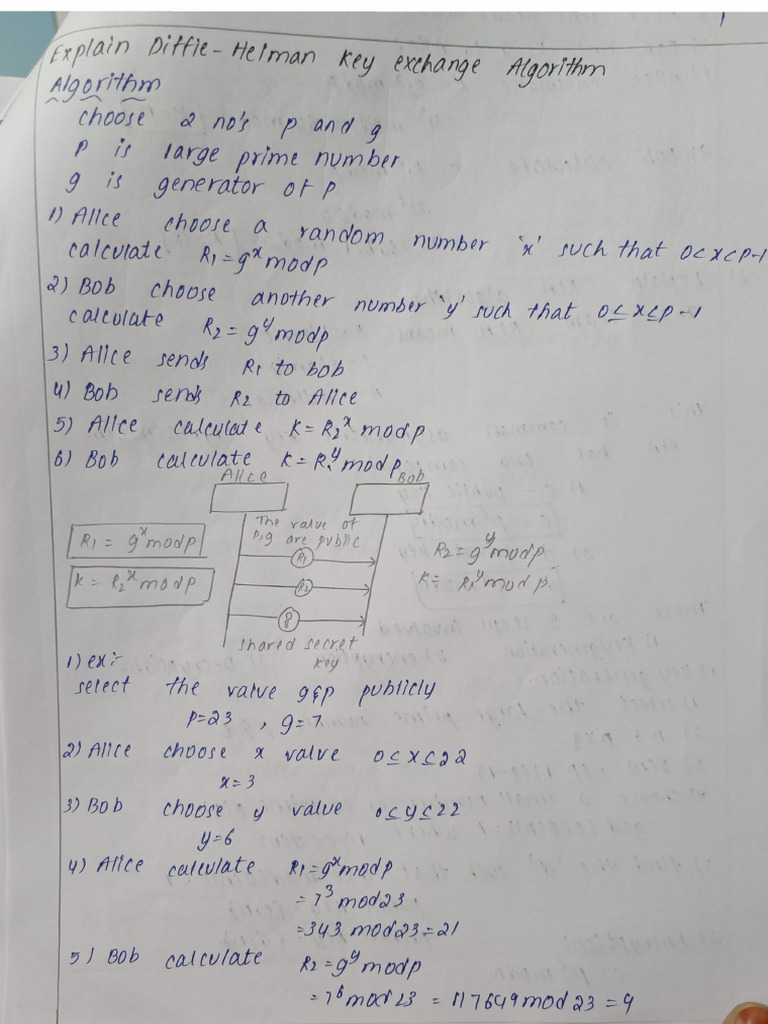 Explain Diffie-Helman key exchange Algorithm
Algorithm
choose 2 no's p and g
P is large prime number
g is generator of P
1) Alice choose a random number 'x' such that 0<x<p-1
calculate R₁ = gˣ mod p
2) Bob choose another number 'y' such that 0≤x≤p-1
calculate R₂ = gʸ mod p
3) Alice sends R₁ to bob
4) Bob sends R₂ to Alice
5) Alice calculate K = R₂ˣ mod p
6) Bob calculate K = R₁ʸ mod p
Alice Bob
The value of
p,g are public
R₁ = gˣ mod p
K = R₂ˣ mod p
R₁
R₂
R₂ = gʸ mod p
K = R₁ʸ mod p
shared secret
key
1) ex:-
select the value g&p publicly
P=23 , g=7
2) Alice choose x value 0≤x≤22
x=3
3) Bob choose y value 0≤y≤22
y=6
4) Alice calculate R₁ = gˣ mod p
= 7³ mod 23
= 343 mod 23 = 21
5) Bob calculate R₂ = gʸ mod p
= 7⁶ mod 23 = 117649 mod 23 = 4